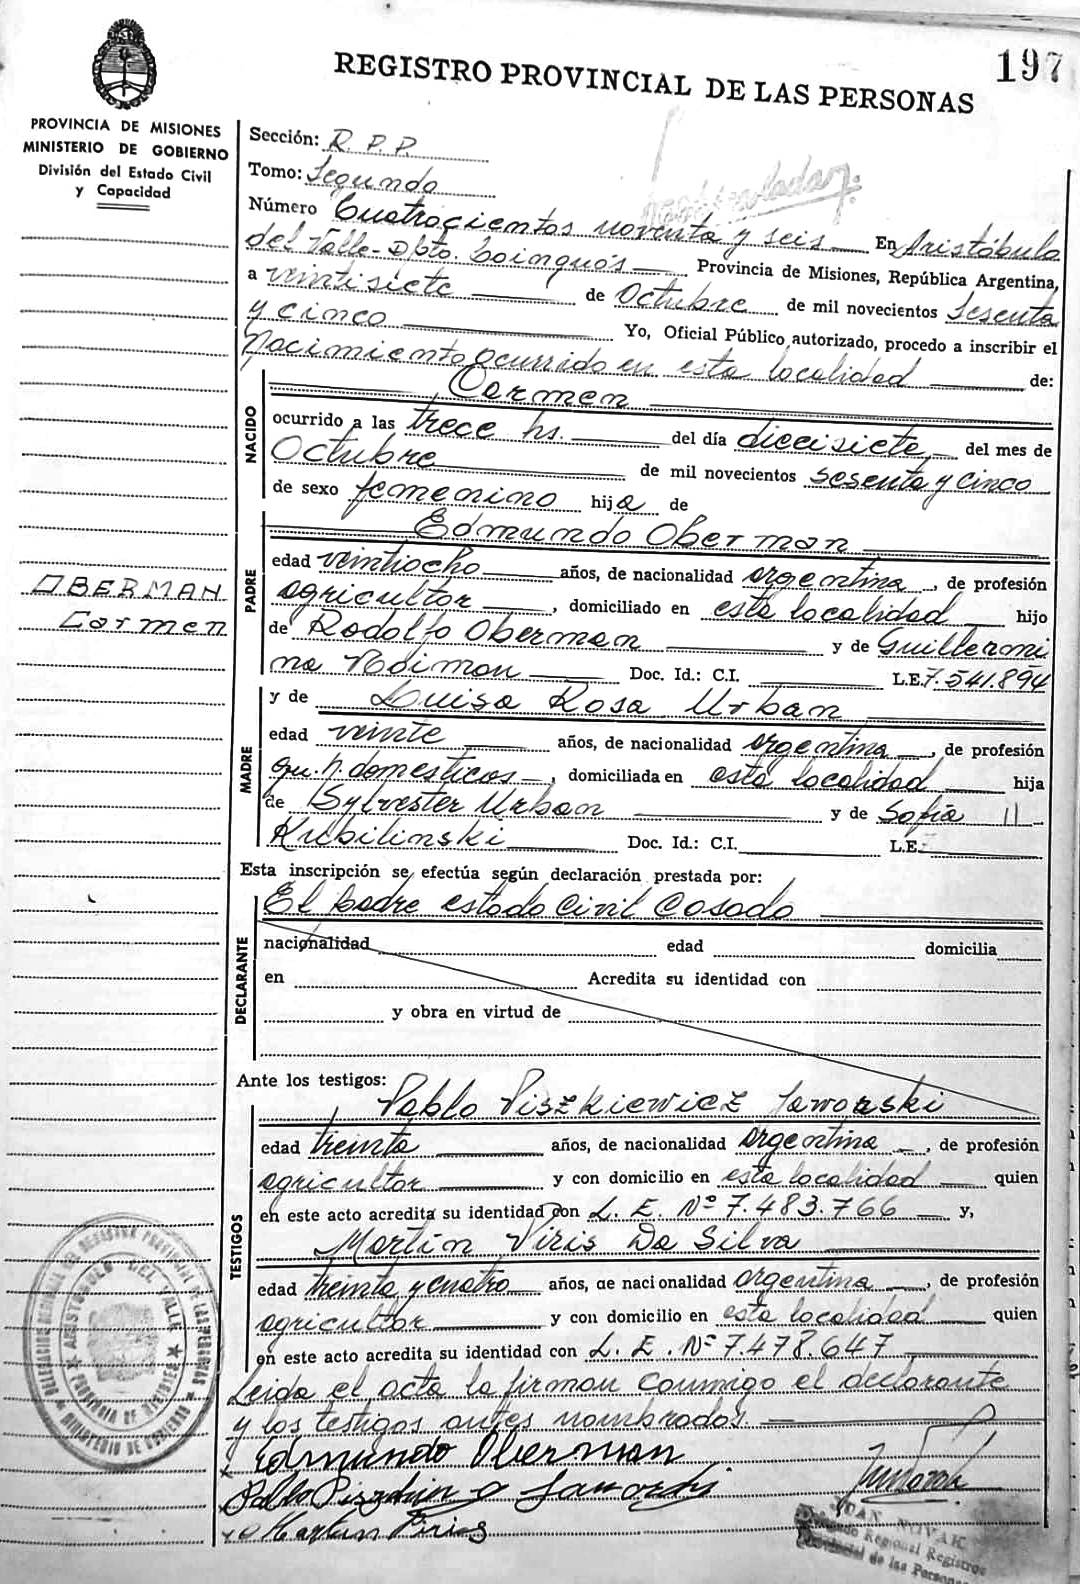 197
REGISTRO PROVINCIAL DE LAS PERSONAS
PROVINCIA DE MISIONES
MINISTERIO DE GOBIERNO
División del Estado Civil
y Capacidad
Sección: R. P. P.
Tomo: Segundo
Número Cuatrocientos noventa y seis En Aristóbulo
del Valle - Dpto. Cainguás Provincia de Misiones, República Argentina,
a veintisiete de Octubre de mil novecientos Sesenta
y cinco Yo, Oficial Público autorizado, procedo a inscribir el
Nacimiento ocurrido en esta localidad de:
NACIDO
Carmen
ocurrido a las trece hs. del día diecisiete del mes de
Octubre de mil novecientos sesenta y cinco
de sexo femenino hija de
PADRE
Edmundo Oberman
edad veintiocho años, de nacionalidad argentina, de profesión
agricultor, domiciliado en esta localidad hijo
de Rodolfo Oberman y de Guillermi
na Doc. Id.: C.I. L.E. 7.541.894
OBERMAN
Carmen
MADRE
y de Luisa Rosa Urban
edad veinte años, de nacionalidad argentina, de profesión
qu. h. domesticos, domiciliada en esta localidad hija
de Sylvester Urban y de Sofía
Kubilinski Doc. Id.: C.I. L.E.
Esta inscripción se efectúa según declaración prestada por:
DECLARANTE
El padre estado civil Casado
nacionalidad edad domicilia
en Acredita su identidad con
y obra en virtud de
Ante los testigos:
TESTIGOS
Pablo Piszkiewicz Jaworski
edad treinta años, de nacionalidad argentina, de profesión
agricultor y con domicilio en esta localidad quien
en este acto acredita su identidad con L. E. Nº 7.483.766 y,
Martín Piris Da Silva
edad treinta y cuatro años, de nacionalidad argentina, de profesión
agricultor y con domicilio en esta localidad quien
en este acto acredita su identidad con L. E. Nº 7.478.647
Leida el acta la firman conmigo el declarante
y los testigos antes nombrados.
Edmundo Oberman
Martin Piris
DELEGACION REGIONAL DEL REGISTRO PROVINCIAL DE LAS PERSONAS
ARISTOBULO DEL VALLE
PROVINCIA DE MISIONES
MINISTERIO DE GOBIERNO
JUAN NOVAK
Delegado Regional Registros
Provincial de las Personas